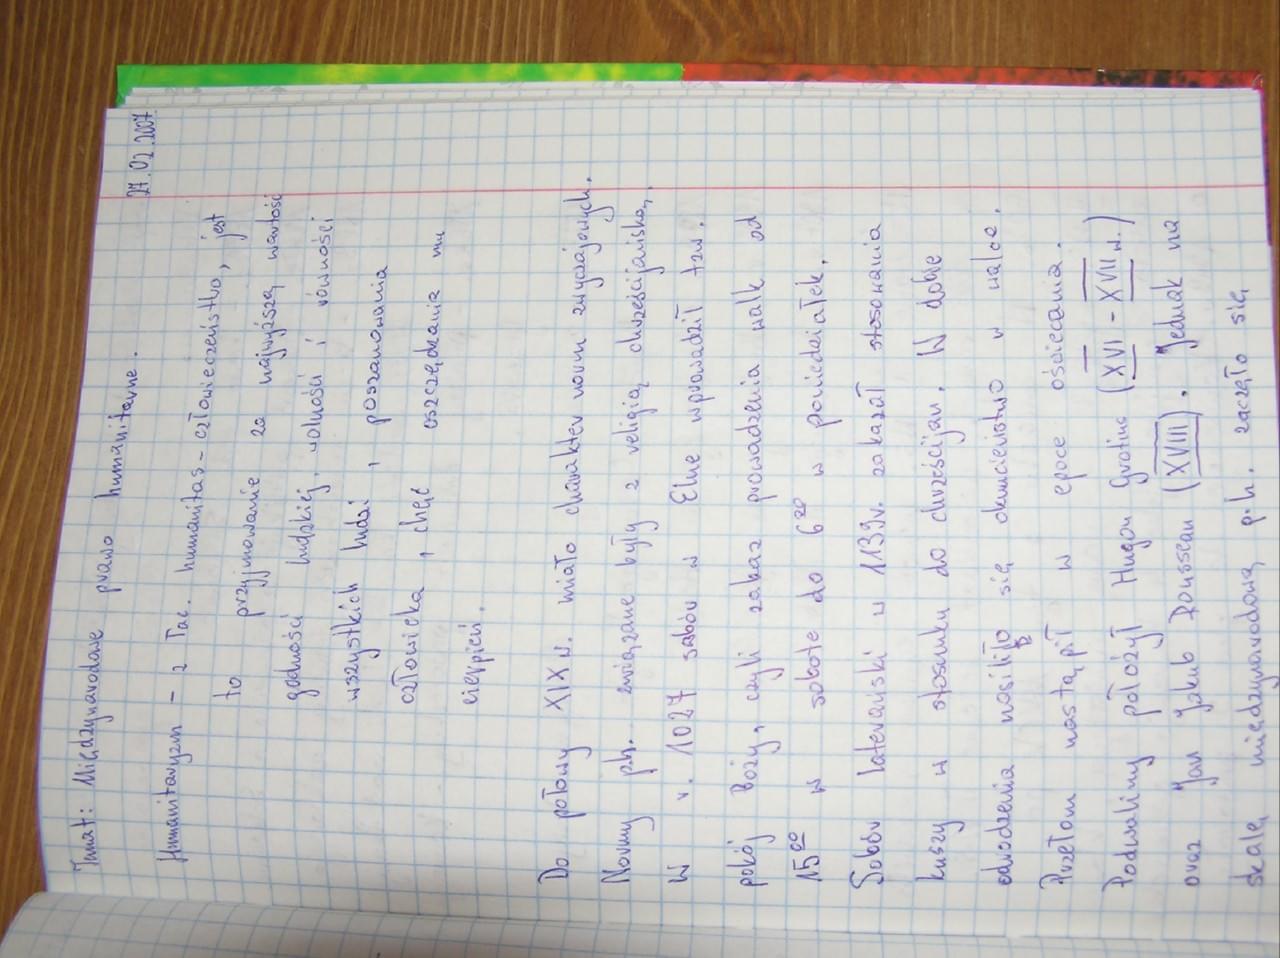 27.02.2007
Temat: Międzynarodowe prawo humanitarne.
Humanitaryzm - z łac. humanitas - człowieczeństwo, jest
to przyjmowanie za najwyższą wartość
godności ludzkiej, wolności i równości
wszystkich ludzi, poszanowania
człowieka, chęć oszczędzania mu
cierpień.
Do połowy XIX w. miało charakter norm zwyczajowych.
Normy p.h. związane były z religią chrześcijańską.
W r. 1027 sobór w Elne wprowadził tzw.
pokój Boży, czyli zakaz prowadzenia walk od
15⁰⁰ w sobote do 6⁰⁰ w poniedziałek.
Sobór laterański w 1139r. zakazał stosowania
kuszy w stosunku do chrześcijan. W dobie
odrodzenia nasiliło się okrucieństwo w walce.
Przełom nastąpił w epoce oświecenia.
Podwaliny położył Hugon Grotius (XVI - XVII w.)
oraz Jan Jakub Rousseau (XVIII). Jednak na
skalę międzynarodową p.h. zaczęło się